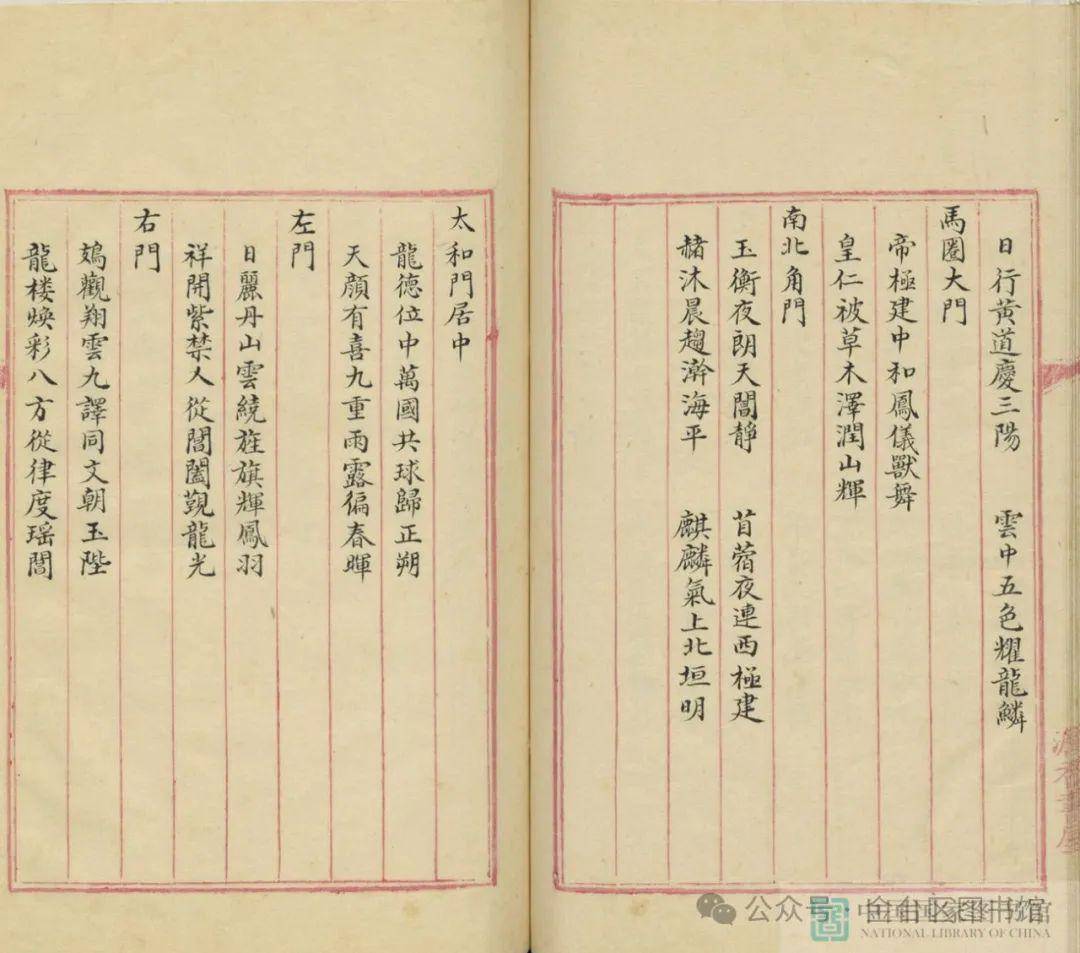 日行黃道慶三陽　雲中五色耀龍鱗
馬圈大門
帝極建中和鳳儀獸舞
皇仁被草木澤潤山輝
南北角門
玉衡夜朗天閶靜　苜蓿夜連西極建
赭沐晨趨瀚海平　麒麟氣上北垣明
太和門居中
龍德位中萬國共球歸正朔
天顏有喜九重雨露徧春暉
左門
日麗丹山雲繞旌旗輝鳳羽
祥開紫禁人從閶闔覲龍光
右門
鳷觀翔雲九譯同文朝玉陛
龍楼煥彩八方從律度瑶閶
公众号·金台区图书馆
NATIONAL LIBRARY OF CHINA